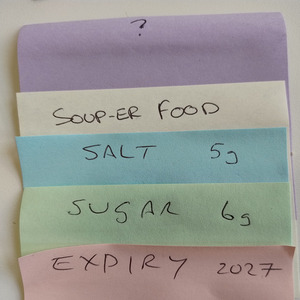 ?
SOUP-ER FOOD
SALT 5g
SUGAR 6g
EXPIRY 2027